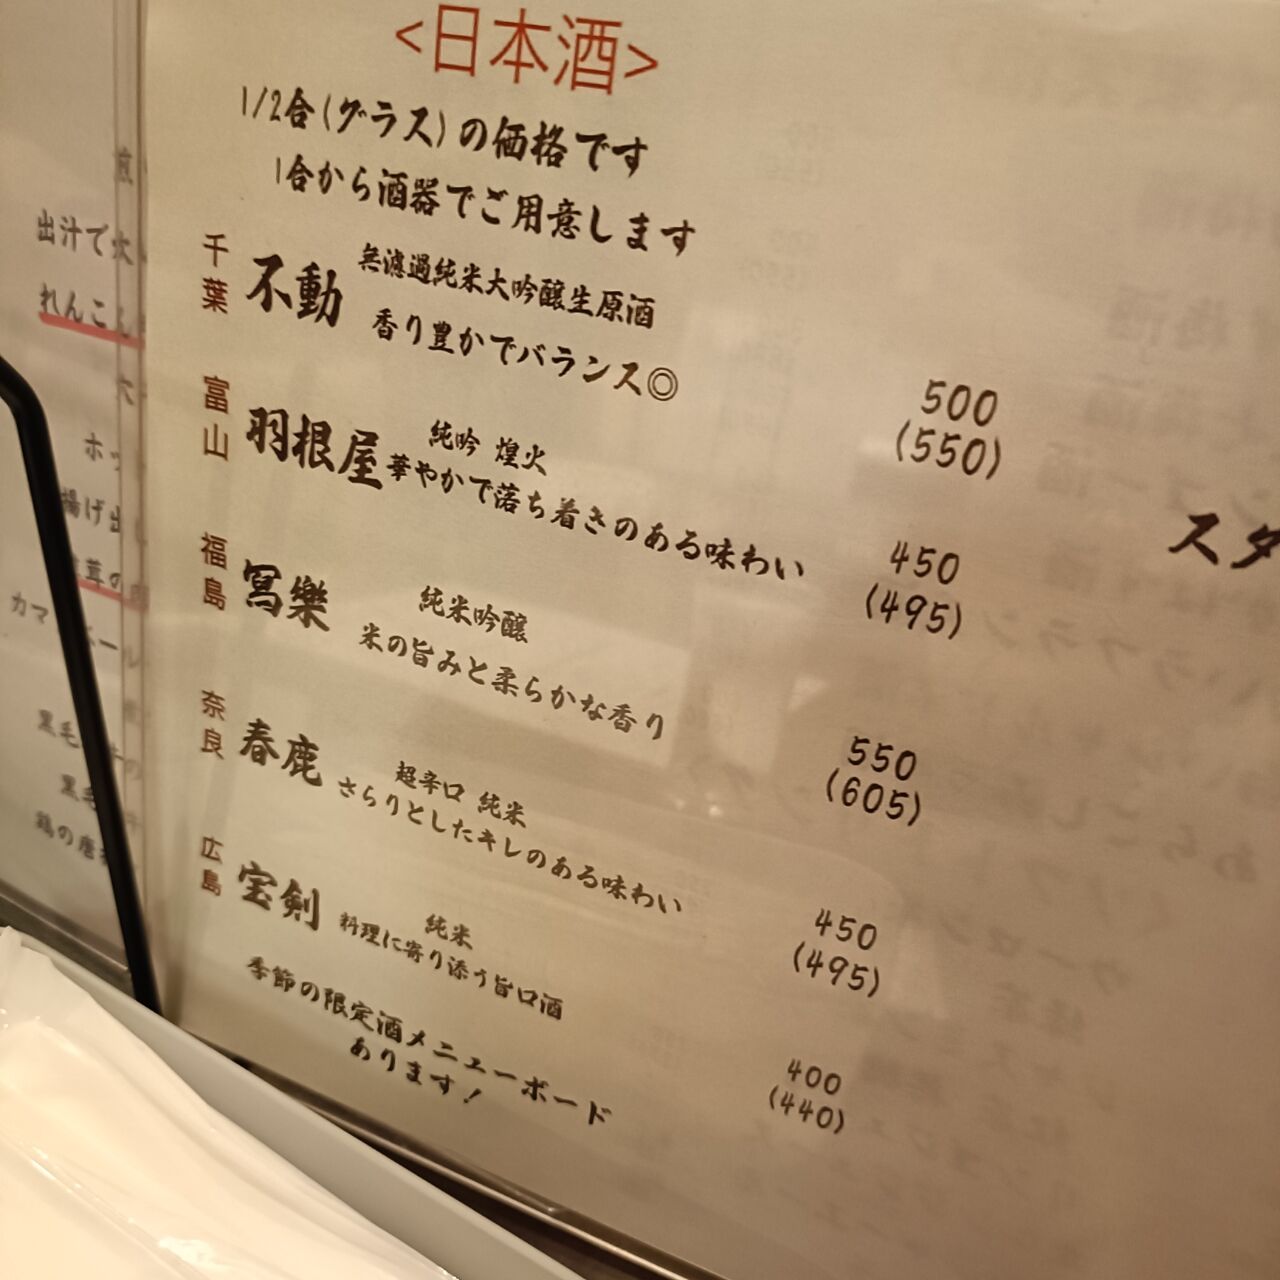 <日本酒>
1/2合(グラス)の価格です
1合から酒器でご用意します
千葉 不動 無濾過純米大吟醸生原酒
香り豊かでバランス◎
500
(550)
富山 羽根屋 純吟 煌火
華やかで落ち着きのある味わい
450
(495)
福島 冩樂 純米吟醸
米の旨みと柔らかな香り
550
(605)
奈良 春鹿 超辛口 純米
さらりとしたキレのある味わい
450
(495)
広島 宝剣 純米
料理に寄り添う旨口酒
400
(440)
季節の限定酒メニューボード
あります!
スタ
出汁で炊
れんこん
ホッ
揚げ出し
茸の
カマ
黒毛
黒毛
鶏の唐